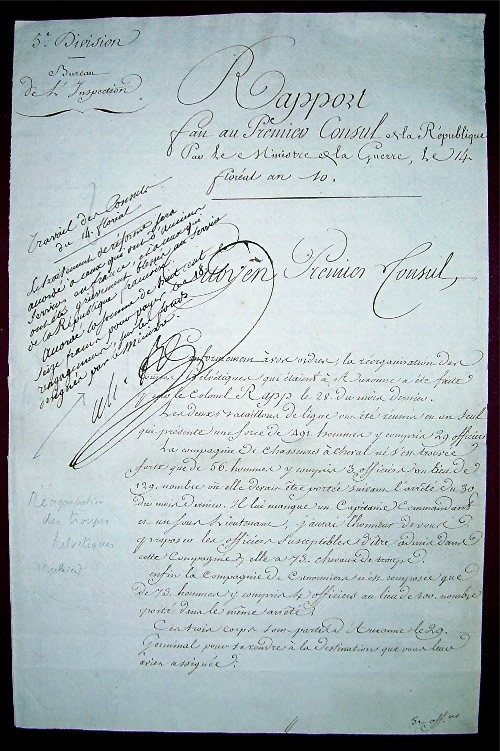 5e Division
Bureau
de l'Inspection
Rapport
fait au Premier Consul de la République
Par le Ministre de la Guerre, le 14
floréal an 10.
Travail des Consuls
du 14 floréal
Le traitement de réforme sera
accordé à ceux qui ont d'ancien
service en france, et à ceux qui
ont été grièvement blessés au service
de la République française
Accordé la somme de huit cent
seize francs pour payer
rengagemens, sur les fonds
désignés par le Ministre
Citoyen Premier Consul,
Conformément à vos ordres, la réorganisation des
Corps helvétiques qui étaient à Auxonne a été faite
par le Colonel Rapp, le 28 du mois dernier.
Les deux Bataillons de ligne ont été réunis en un seul
qui présente une force de 491 hommes y compris 29 officiers
La compagnie de Chasseurs à cheval ne s'est trouvée
forte que de 56 hommes y compris 3 officiers au lieu de
129 nombre où elle devait être portée suivant l'arrêté du 30
du mois dernier. Il lui manque un Capitaine Commandant
et un sous lieutenant, j'aurai l'honneur de vous
proposer les officiers susceptibles d'être admis dans
cette Compagnie, elle a 73 chevaux de troupe.
enfin la Compagnie de Canonniers n'est composée que
de 73 hommes y compris 4 officiers au lieu de 100 nombre
porté dans le même arrêté.
Ces trois corps sont partis d'Auxonne le 29
Germinal pour se rendre à la destination que vous leur
aviez assignée.
Réorganisation
des troupes
helvétiques